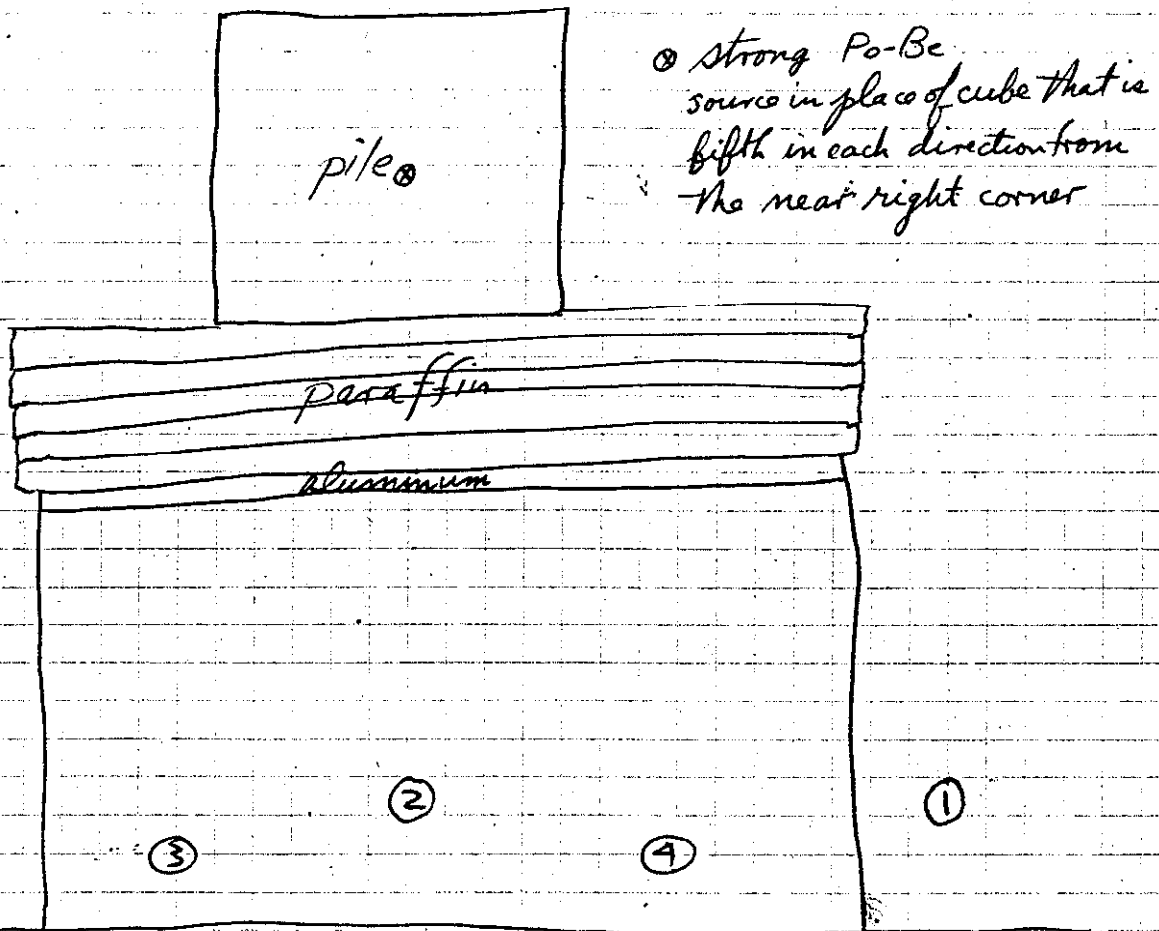 ⊗ strong Po-Be
source in place of cube that is
fifth in each direction from
the near right corner
pile ⊗
paraffin
aluminum
② ①
③ ④